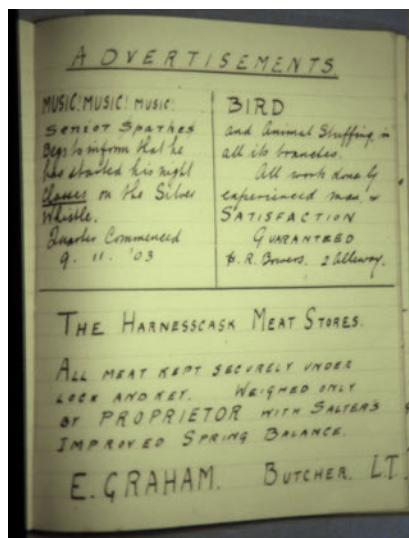 ADVERTISEMENTS
MUSIC! MUSIC! MUSIC:
Senior Spathes
Begs to inform that he
has started his night
Classes on the Silver
Whistle.
Quarter Commenced
9. 11. '03
BIRD
and Animal Stuffing in
all its branches.
All work done by
experienced man, &
SATISFACTION
GUARANTEED
R. Bowers. 2 Alleway.
THE HARNESSCASK MEAT STORES.
ALL MEAT KEPT SECURELY UNDER
LOCK AND KEY. WEIGHED ONLY
BY PROPRIETOR WITH SALTER'S
IMPROVED SPRING BALANCE.
E. GRAHAM. BUTCHER. L.T.